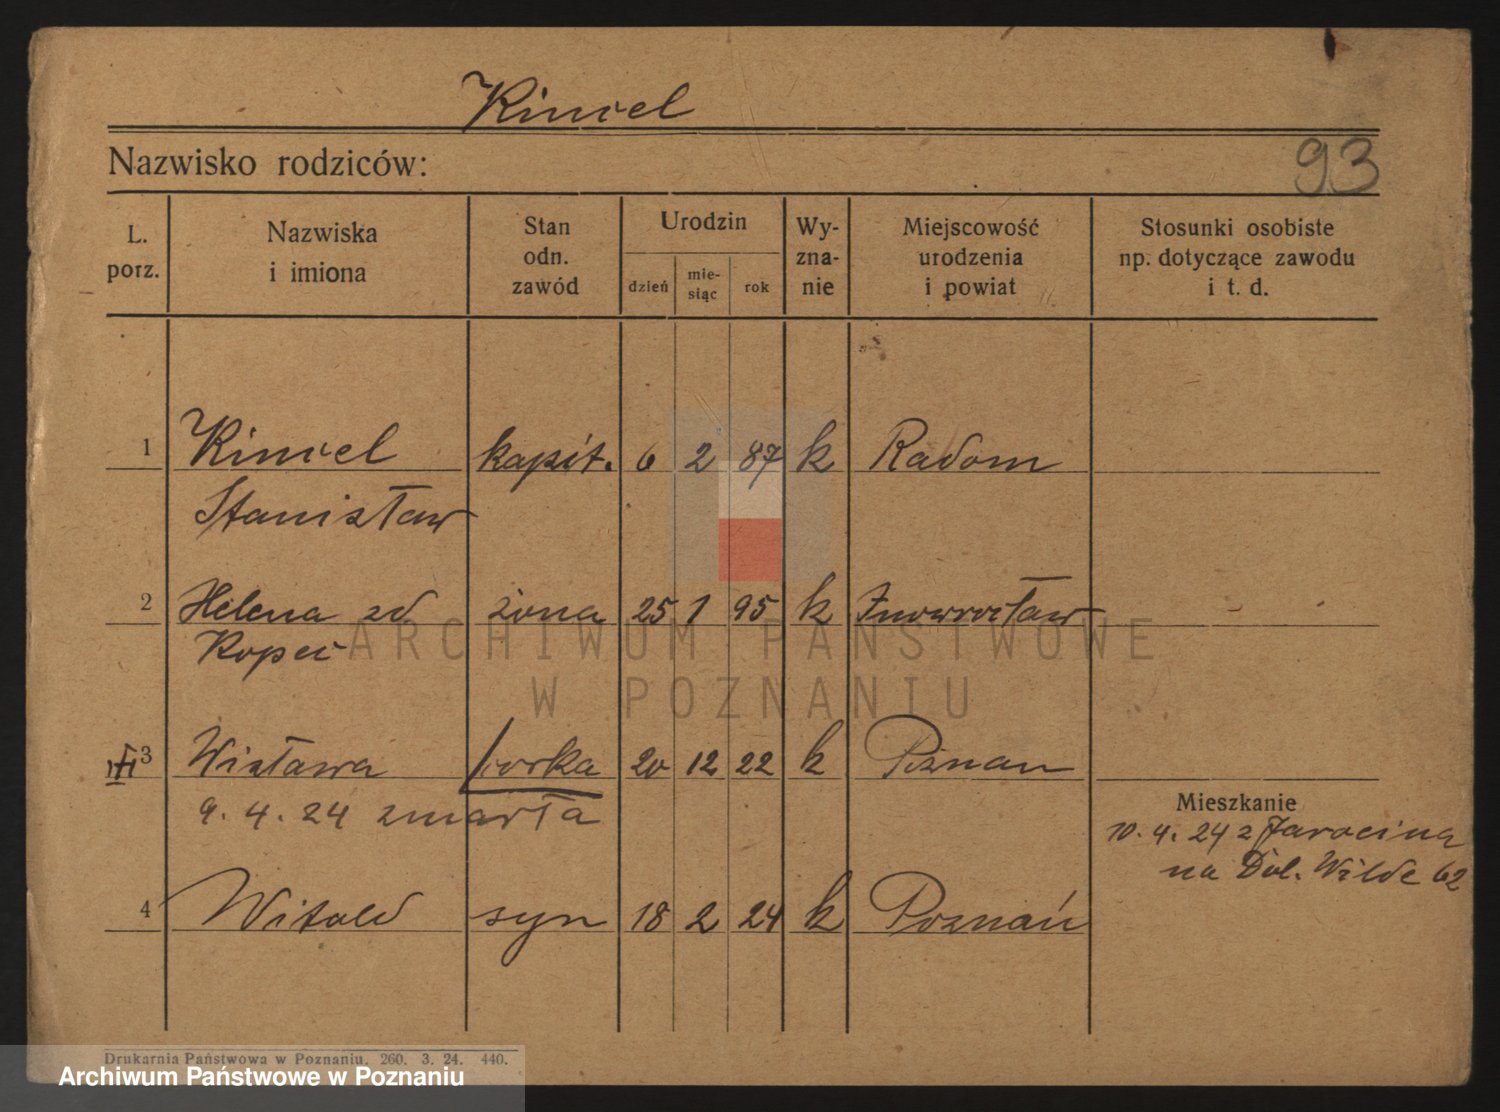 Kinicel
Nazwisko rodziców:
93
L. porz.
Nazwiska i imiona
Stan odn. zawód
Urodzin
dzień
mie-siąc
rok
Wy-zna-nie
Miejscowość urodzenia i powiat
Stosunki osobiste np. dotyczące zawodu i t. d.
1 Kinicel kapit. 6 2 87 k Radom
Stanisław
2 Helena zd żona 25 1 95 k Inowrocław
Kopeć
3 Wisława córka 20 12 22 k Poznan
9. 4. 24 zmarła
Mieszkanie
10. 4. 24 z Jarocina
na Dol. Wilde 62
4 Witold syn 18 2 24 k Poznań
ARCHIWUM PAŃSTWOWE
W POZNANIU
Drukarnia Państwowa w Poznaniu. 260. 3. 24. 440.
Archiwum Państwowe w Poznaniu